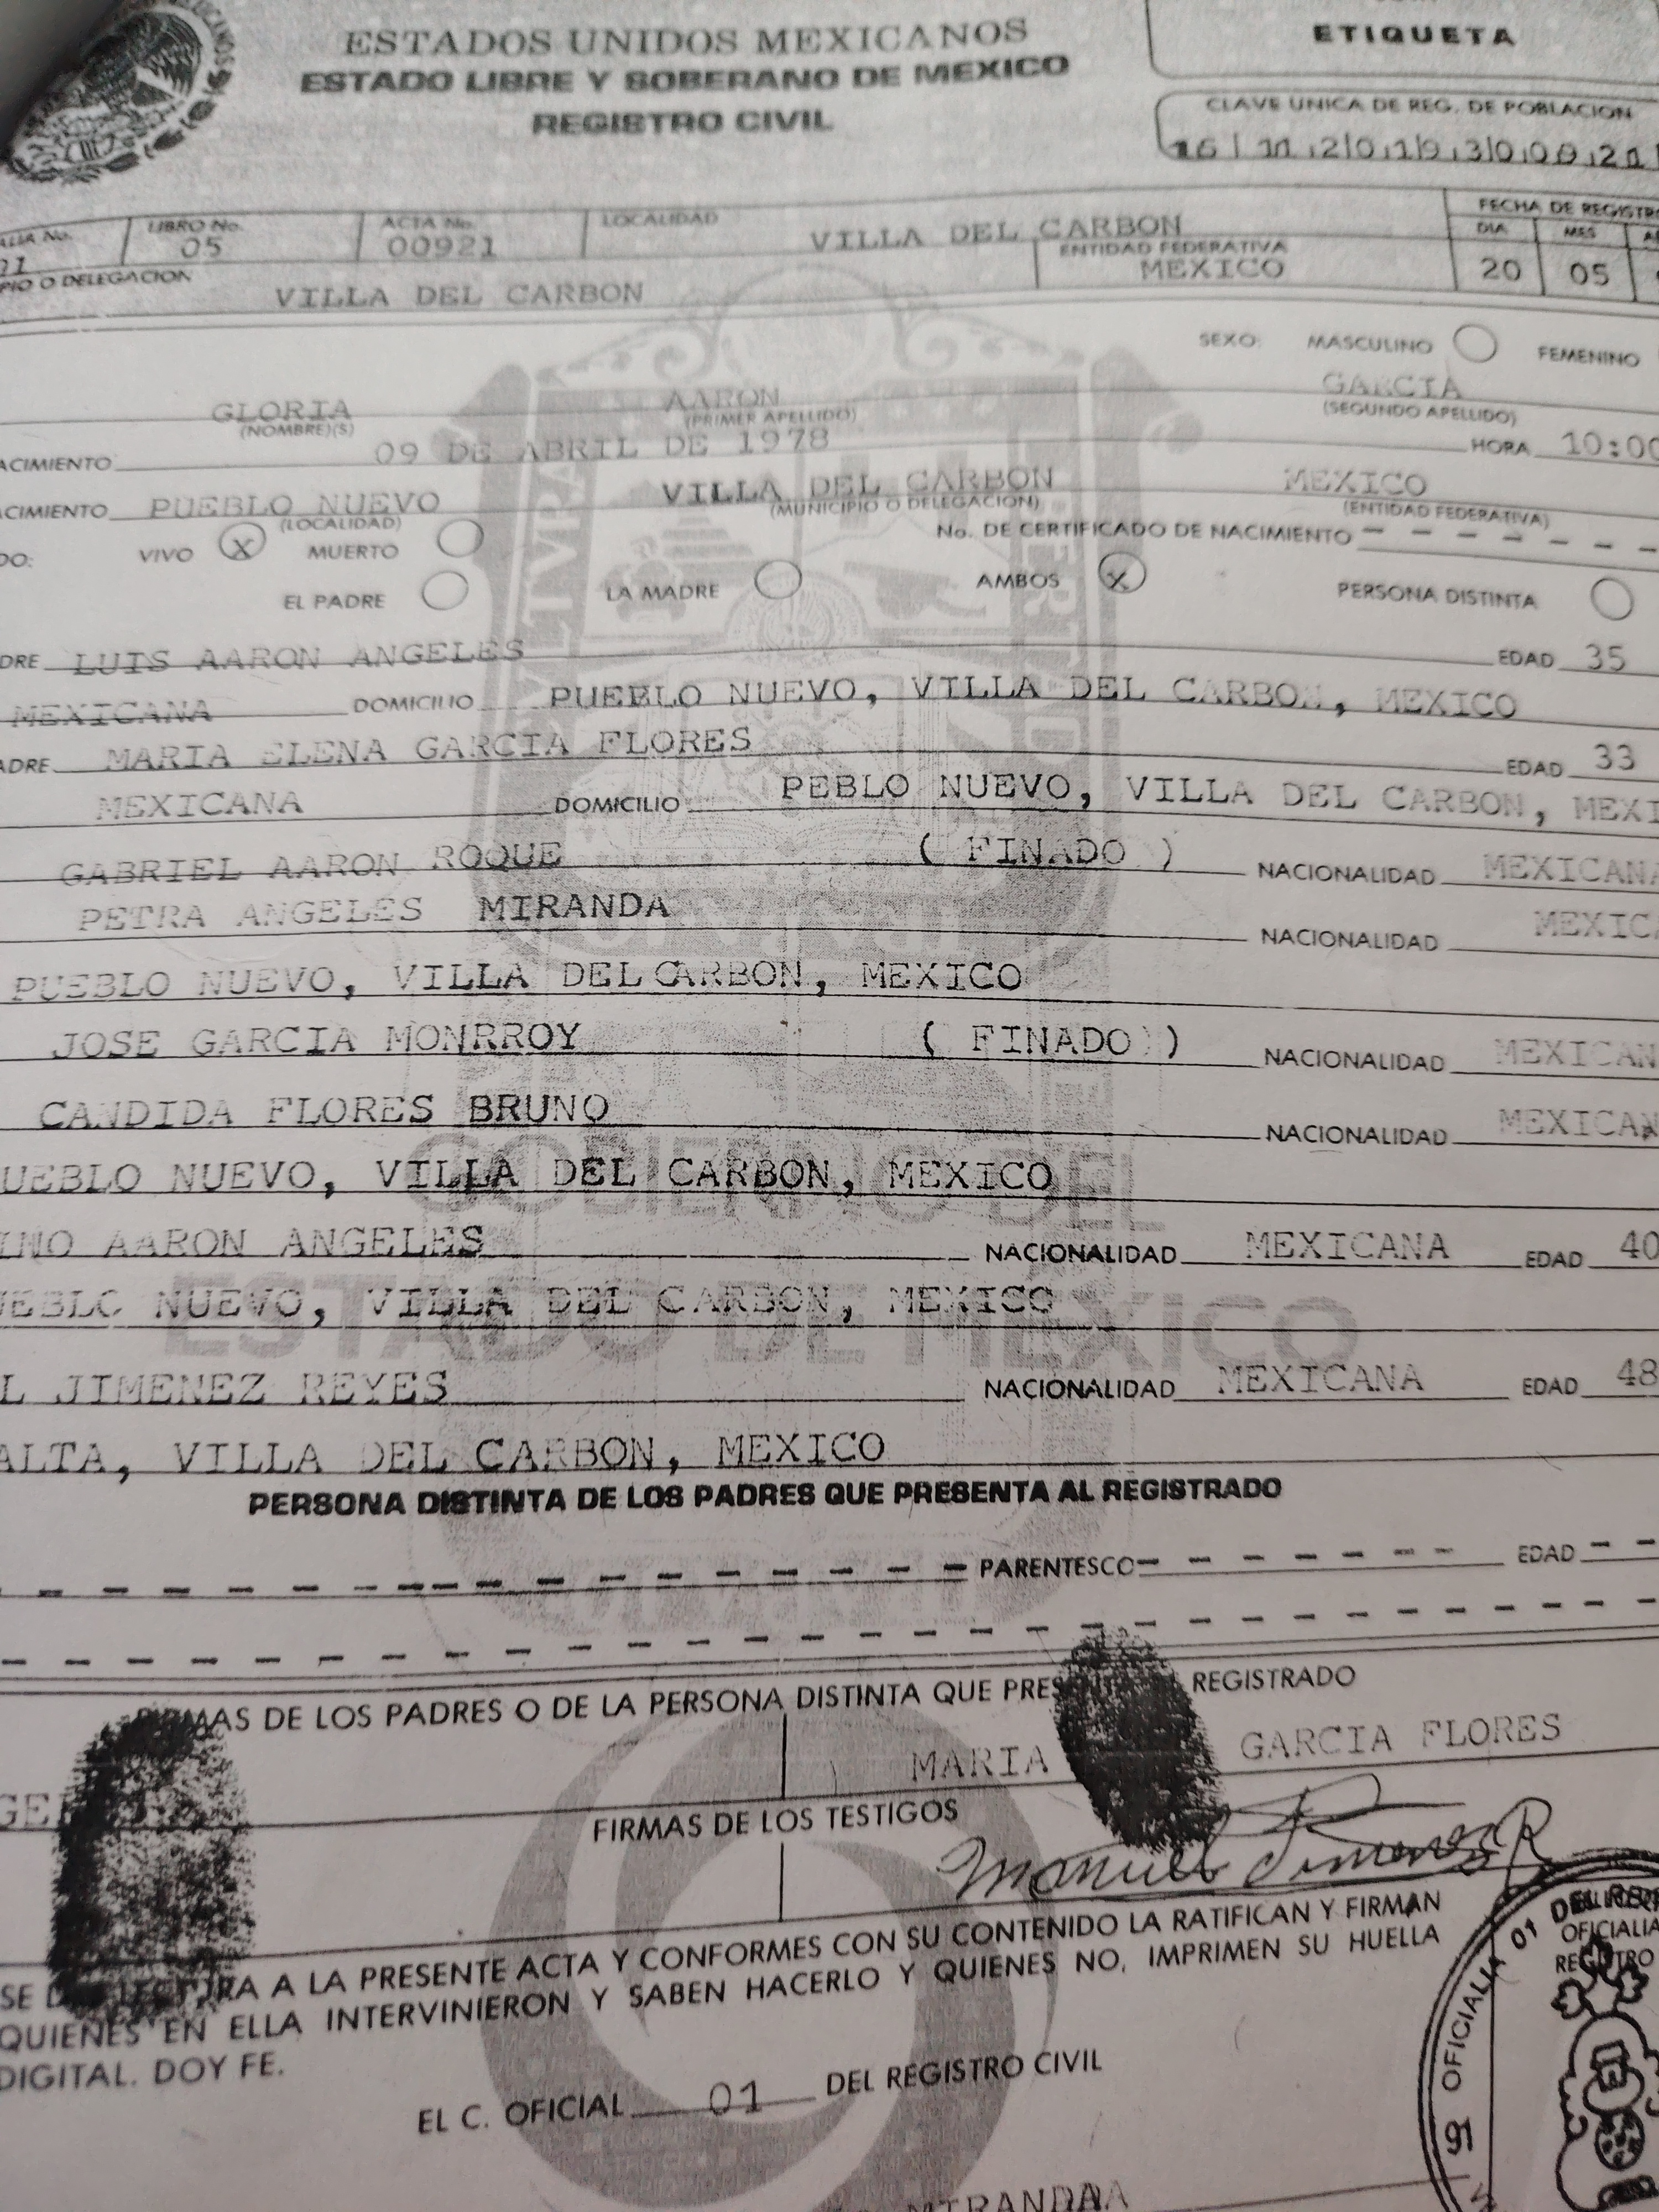 ESTADOS UNIDOS MEXICANOS
ESTADO LIBRE Y SOBERANO DE MEXICO
REGISTRO CIVIL
ETIQUETA
CLAVE UNICA DE REG. DE POBLACION
LIBRO No. ACTA No. LOCALIDAD FECHA DE REGISTRO
05 00921 VILLA DEL CARBON DIA MES
ENTIDAD FEDERATIVA
VILLA DEL CARBON MEXICO 20 05
SEXO: MASCULINO FEMENINO
GLORIA AARON GARCIA
(NOMBRE)(S) (PRIMER APELLIDO) (SEGUNDO APELLIDO)
ACIMIENTO 09 DE ABRIL DE 1978 HORA 10:00
CIMIENTO PUEBLO NUEVO VILLA DEL CARBON MEXICO
(LOCALIDAD) (MUNICIPIO O DELEGACION) (ENTIDAD FEDERATIVA)
DO: VIVO X MUERTO No. DE CERTIFICADO DE NACIMIENTO - - - - - -
EL PADRE LA MADRE AMBOS X PERSONA DISTINTA
DRE LUIS AARON ANGELES EDAD 35
MEXICANA DOMICILIO PUEBLO NUEVO, VILLA DEL CARBON, MEXICO
ADRE MARIA ELENA GARCIA FLORES EDAD 33
MEXICANA DOMICILIO PEBLO NUEVO, VILLA DEL CARBON, MEXI
GABRIEL AARON ROQUE ( FINADO ) NACIONALIDAD MEXICANA
PETRA ANGELES MIRANDA NACIONALIDAD MEXIC
PUEBLO NUEVO, VILLA DEL CARBON, MEXICO
JOSE GARCIA MONRROY ( FINADO ) ) NACIONALIDAD MEXICAN
CANDIDA FLORES BRUNO NACIONALIDAD MEXICAN
UEBLO NUEVO, VILLA DEL CARBON, MEXICO
GOBIERNO DEL
INO AARON ANGELES NACIONALIDAD MEXICANA EDAD 40
UEBLO NUEVO, VILLA DEL CARBON, MEXICO
ESTADO DE MEXICO
L JIMENEZ REYES NACIONALIDAD MEXICANA EDAD 48
ALTA, VILLA DEL CARBON, MEXICO
PERSONA DISTINTA DE LOS PADRES QUE PRESENTA AL REGISTRADO
PARENTESCO EDAD
FIRMAS DE LOS PADRES O DE LA PERSONA DISTINTA QUE PRES REGISTRADO
MARIA GARCIA FLORES
FIRMAS DE LOS TESTIGOS
Manuel Jimenez R
SE LECTURA A LA PRESENTE ACTA Y CONFORMES CON SU CONTENIDO LA RATIFICAN Y FIRMAN
QUIENES EN ELLA INTERVINIERON Y SABEN HACERLO Y QUIENES NO, IMPRIMEN SU HUELLA
DIGITAL. DOY FE.
EL C. OFICIAL 01 DEL REGISTRO CIVIL
OFICIALIA 01 DEL
OFICIALIA
91